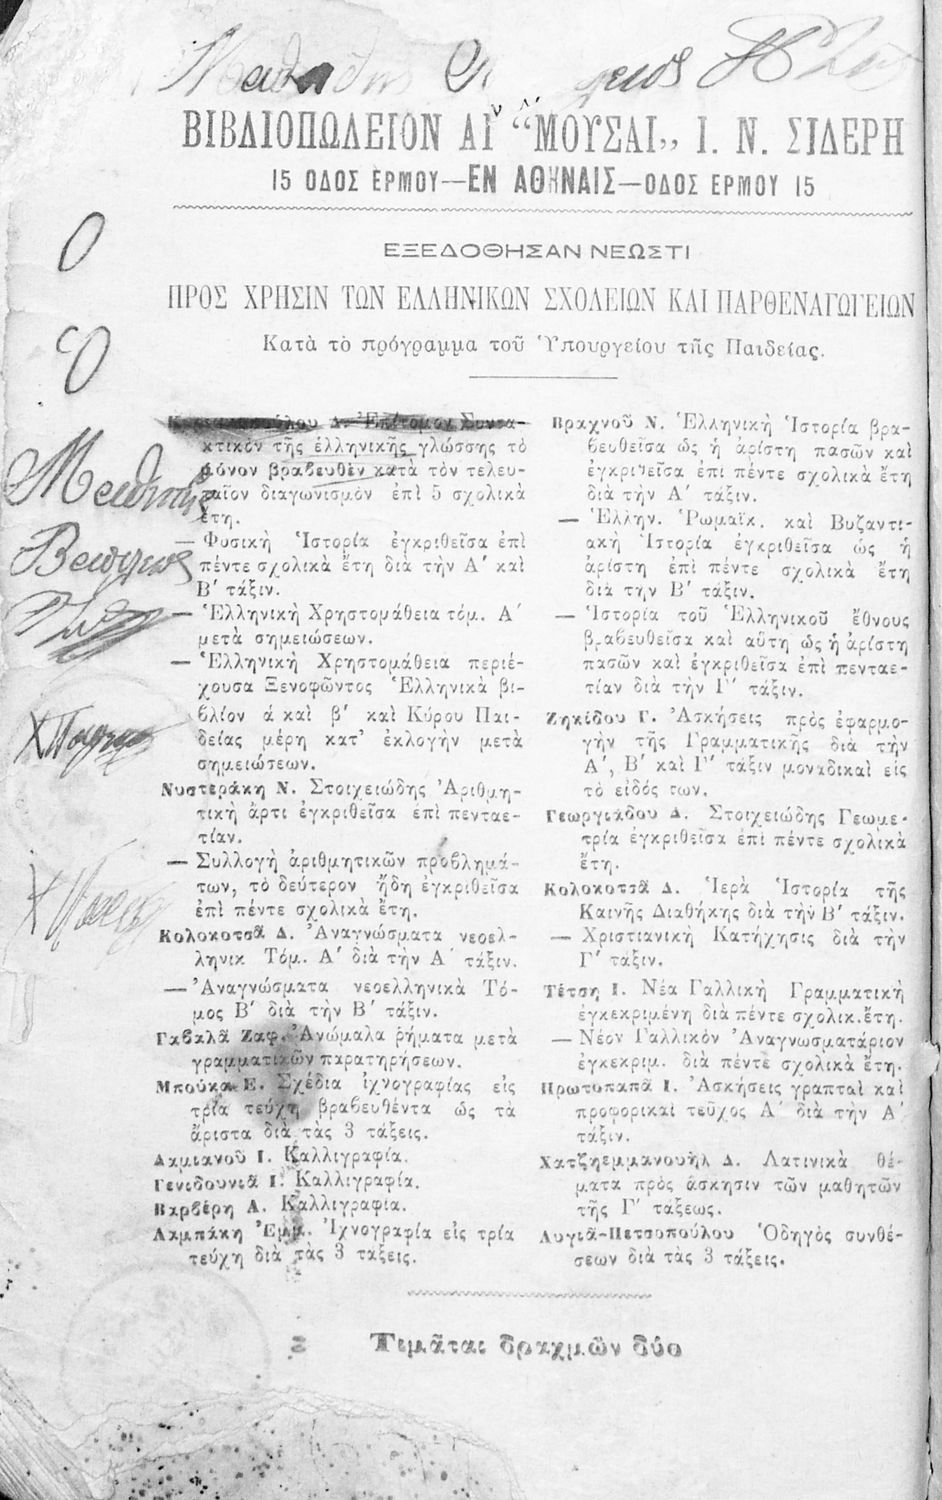 ΒΙΒΛΙΟΠΩΛΕΙΟΝ ΑΙ “ΜΟΥΣΑΙ„ Ι. Ν. ΣΙΔΕΡΗ
15 ΟΔΟΣ ΕΡΜΟΥ—ΕΝ ΑΘΗΝΑΙΣ—ΟΔΟΣ ΕΡΜΟΥ 15
ΕΞΕΔΟΘΗΣΑΝ ΝΕΩΣΤΙ
ΠΡΟΣ ΧΡΗΣΙΝ ΤΩΝ ΕΛΛΗΝΙΚΩΝ ΣΧΟΛΕΙΩΝ ΚΑΙ ΠΑΡΘΕΝΑΓΩΓΕΙΩΝ
Κατὰ τὸ πρόγραμμα τοῦ Ὑπουργείου τῆς Παιδείας.
Δ. Ἐπίτομον Συντα-
κτικὸν τῆς ἑλληνικῆς γλώσσης τὸ
μόνον βραβευθὲν κατὰ τὸν τελευ-
ταῖον διαγωνισμὸν ἐπὶ 5 σχολικὰ
ἔτη.
— Φυσικὴ Ἱστορία ἐγκριθεῖσα ἐπὶ
πέντε σχολικὰ ἔτη διὰ τὴν Α′ καὶ
Β′ τάξιν.
— Ἑλληνικὴ Χρηστομάθεια τόμ. Α′
μετὰ σημειώσεων.
— Ἑλληνικὴ Χρηστομάθεια περιέ-
χουσα Ξενοφῶντος Ἑλληνικὰ βι-
βλίον ά καὶ β′ καὶ Κύρου Παι-
δείας μέρη κατ’ ἐκλογὴν μετὰ
σημειώσεων.
Νυστεράκη Ν. Στοιχειώδης Ἀριθμη-
τικὴ ἄρτι ἐγκριθεῖσα ἐπὶ πενταε-
τίαν.
— Συλλογὴ ἀριθμητικῶν προβλημά-
των, τὸ δεύτερον ἤδη ἐγκριθεῖσα
ἐπὶ πέντε σχολικὰ ἔτη.
Κολοκοτσᾶ Δ. Ἀναγνώσματα νεοελ-
ληνικ Τόμ. Α′ διὰ τὴν Α′ τάξιν.
— Ἀναγνώσματα νεοελληνικὰ Τό-
μος Β′ διὰ τὴν Β′ τάξιν.
Γαβαλᾶ Ζαφ. Ἀνώμαλα ῥήματα μετὰ
γραμματικῶν παρατηρήσεων.
Μπούκα Ε. Σχέδια ἰχνογραφίας εἰς
τρία τεύχη βραβευθέντα ὡς τὰ
ἄριστα διὰ τὰς 3 τάξεις.
Δαμιανοῦ Ι. Καλλιγραφία.
Γενιδουνιᾶ Ι. Καλλιγραφία.
Βαρβέρη Α. Καλλιγραφία.
Λαμπάκη Ἐμμ. Ἰχνογραφία εἰς τρία
τεύχη διὰ τὰς 3 τάξεις.
Βραχνοῦ Ν. Ἑλληνικὴ Ἱστορία βρα-
βευθεῖσα ὡς ἡ ἀρίστη πασῶν καὶ
ἐγκριθεῖσα ἐπὶ πέντε σχολικὰ ἔτη
διὰ τὴν Α′ τάξιν.
— Ἑλλην. Ῥωμαϊκ. καὶ Βυζαντι-
ακὴ Ἱστορία ἐγκριθεῖσα ὡς ἡ
ἀρίστη ἐπὶ πέντε σχολικὰ ἔτη
διὰ τὴν Β′ τάξιν.
— Ἱστορία τοῦ Ἑλληνικοῦ ἔθνους
βραβευθεῖσα καὶ αὕτη ὡς ἡ ἀρίστη
πασῶν καὶ ἐγκριθεῖσα ἐπὶ πενταε-
τίαν διὰ τὴν Γ′ τάξιν.
Ζηκίδου Γ. Ἀσκήσεις πρὸς ἐφαρμο-
γὴν τῆς Γραμματικῆς διὰ τὴν
Α′, Β′ καὶ Γ′ τάξιν μοναδικαὶ εἰς
τὸ εἶδός των.
Γεωργιάδου Δ. Στοιχειώδης Γεωμε-
τρία ἐγκριθεῖσα ἐπὶ πέντε σχολικὰ
ἔτη.
Κολοκοτσᾶ Δ. Ἱερὰ Ἱστορία τῆς
Καινῆς Διαθήκης διὰ τὴν Β′ τάξιν.
— Χριστιανικὴ Κατήχησις διὰ τὴν
Γ′ τάξιν.
Τέτση Ι. Νέα Γαλλικὴ Γραμματικὴ
ἐγκεκριμένη διὰ πέντε σχολικ. ἔτη.
— Νέον Γαλλικὸν Ἀναγνωσματάριον
ἐγκεκριμ. διὰ πέντε σχολικὰ ἔτη.
Πρωτοπαπᾶ Ι. Ἀσκήσεις γραπταὶ καὶ
προφορικαὶ τεῦχος Α′ διὰ τὴν Α′
τάξιν.
Χατζηεμμανουὴλ Δ. Λατινικὰ θέ-
ματα πρὸς ἄσκησιν τῶν μαθητῶν
τῆς Γ′ τάξεως.
Λυγιᾶ-Πετσοπούλου Ὁδηγὸς συνθέ-
σεων διὰ τὰς 3 τάξεις.
Τιμᾶται δραχμῶν δύο